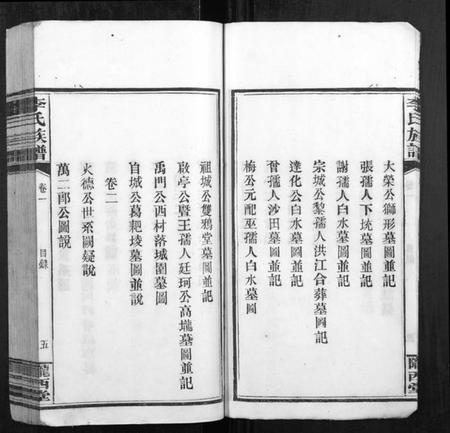 李氏族譜
大榮公獅形墓圖並記
張孺人下坑墓圖並記
謝孺人白水墓圖並記
宗城公黎孺人洪江合葬墓圖記
達化公白水墓圖並記
曾孺人沙田墓圖並記
梅公元配巫孺人白水墓圖
隴西堂
祖城公雙鵝堂墓圖並記
啟亭公暨王孺人廷珂公高壠墓圖並記
禹門公西村落城圍墓圖
自城公葛耙堎墓圖並說
卷二
火德公世系闕疑說
萬二郎公圖說
李氏族譜
卷一
目錄
五
隴西堂